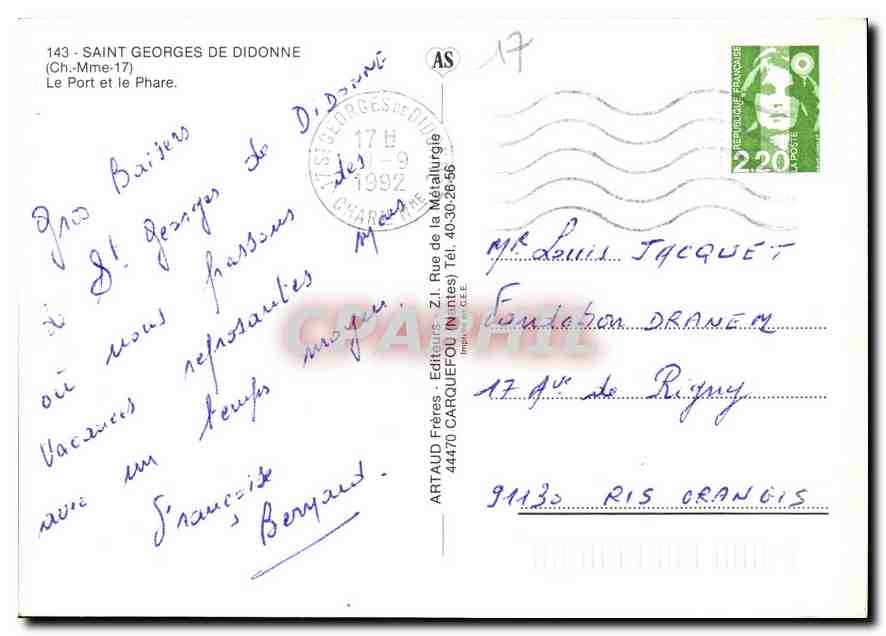 143 - SAINT GEORGES DE DIDONNE
(Ch.-Mme-17)
Le Port et le Phare.
AS
17
17 ST GEORGES DE DIDONNE
17 H
10-9
1992
CHARENTE MME
RÉPUBLIQUE FRANÇAISE
2,20
LA POSTE
Gros Baisers
de St. Georges de DIDONNE
où nous passons des
Vacances reposantes mais
avec un temps moyen.
Françoise
Bernard.
ARTAUD Frères - Editeurs - Z.I. Rue de la Métallurgie
44470 CARQUEFOU (Nantes) Tél. 40-30-26-56
Imprimé en C.E.E.
CPAPHIL
Mr Louis JACQUET
Fondation DRANEM
17 Ave de Rigny
91130 RIS ORANGIS